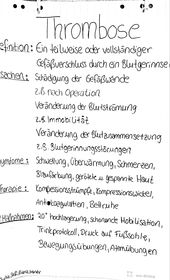 Thrombose
efinition: Ein teilweise oder vollständiger
Gefäßverschluss durch ein Blutgerinnse
sachen: Schädigung der Gefäßwände
z.B nach Operation
Veränderung der Blutströmung
z.B Immobilität
Veränderung, der Blutzusammensetzung
z.B. Blutgerinnungsstörungen
ymptome: Schwellung, Überwärmung, Schmerzen,
Blaufärbung, gerötete u gespannte Haut
herapie: Kompressionsstrümpfe, Kompressionswickel,
Antikoagulation, Bettruhe
Maßnahmen: 20° hochlagerung, schonende Mobilisation,
Trinkprotokoll, Druck auf Fußsohle,
Bewegungsübungen, Atemübungen